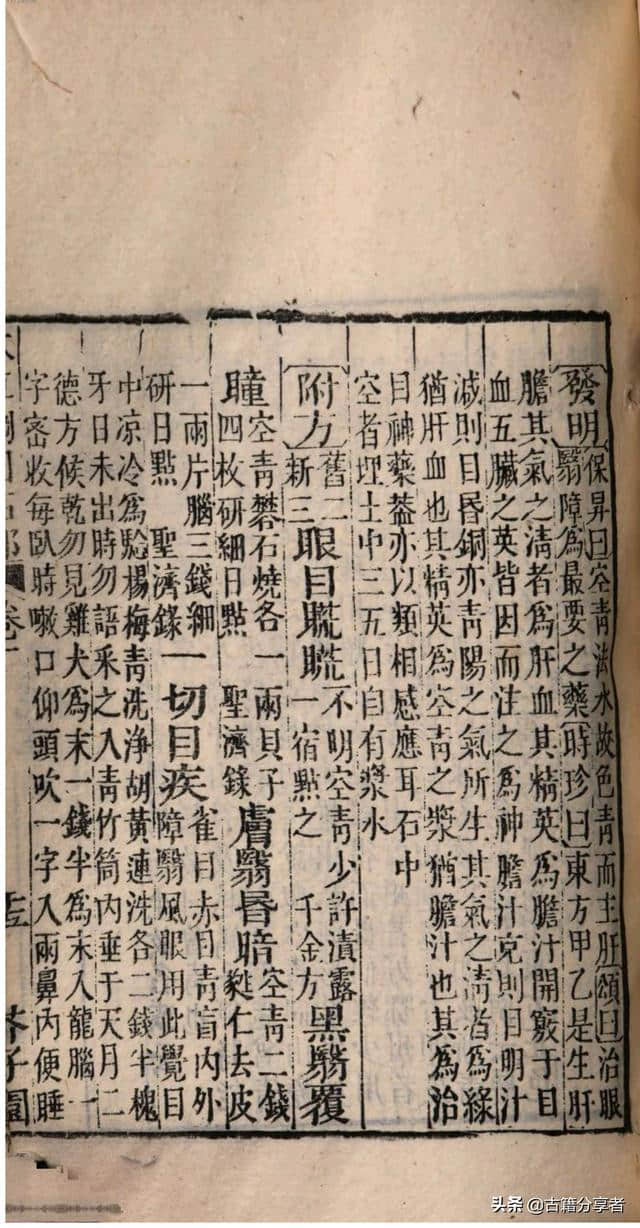 發明 保昇曰空青法木故色青而主肝頌曰治眼
翳障為最要之藥時珍曰東方甲乙是生肝
膽其氣之清者為肝血其精英為膽汁開竅于目
血五臟之英皆因而注之為神膽汁充則目明汁
減則目昏銅亦青陽之氣所生其氣之清者為綠
猶肝血也其精英為空青之漿猶膽汁也其為治
目神藥蓋亦以類相感應耳石中
空者埋土中三五日自有漿水
附方 舊二新三 眼目䀮䀮 不明空青少許漬露一宿點之 千金方 黑翳覆
瞳 空青礬石燒各一兩貝子四枚研細日點 聖濟錄 膚翳昏暗 空青二錢蕤仁去皮
一兩片腦三錢細研日點 聖濟錄 一切目疾 雀目赤目青盲內外障翳風眼用此覺目
中涼冷為驗楊梅青洗淨胡黃連洗各二錢半槐
牙日未出時勿語采之入青竹筒內垂于天月二
德方候乾勿見雞犬為末一錢半為末入龍腦一
字密收每臥時嗽口仰頭吹一字入兩鼻內便睡
芥子園
头条 @古籍分享者